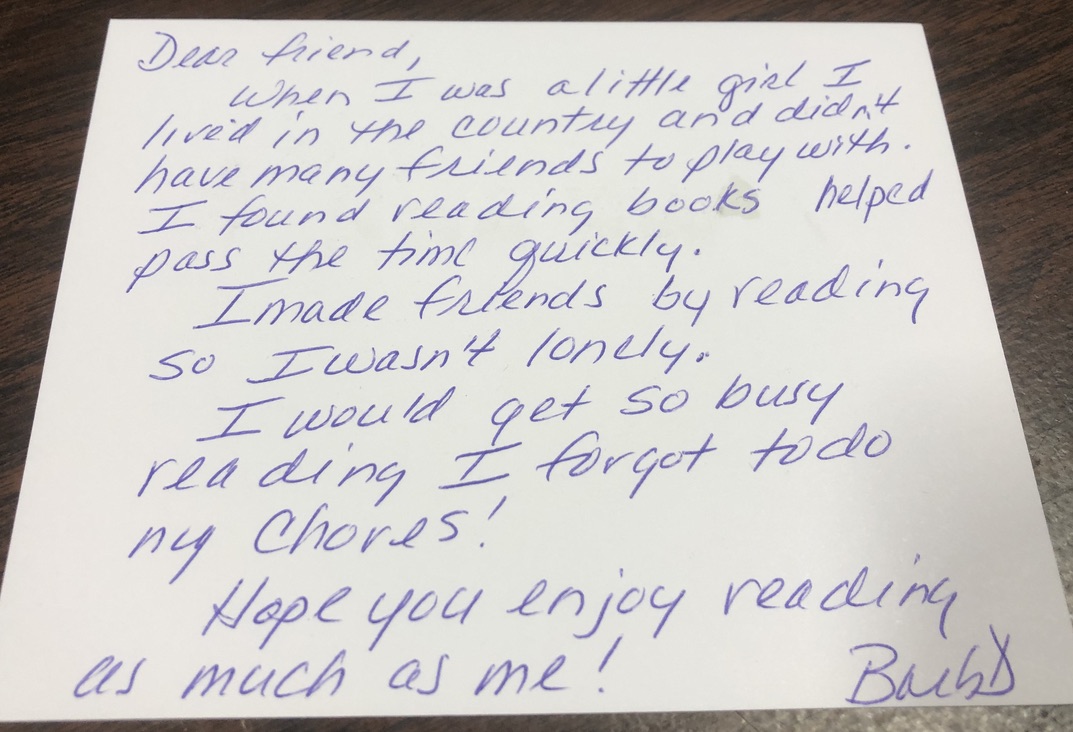 Dear friend,
When I was a little girl I
lived in the country and didn't
have many friends to play with.
I found reading books helped
pass the time quickly.
I made friends by reading
so I wasn't lonely.
I would get so busy
reading I forgot to do
my chores!
Hope you enjoy reading
as much as me!
Barb D